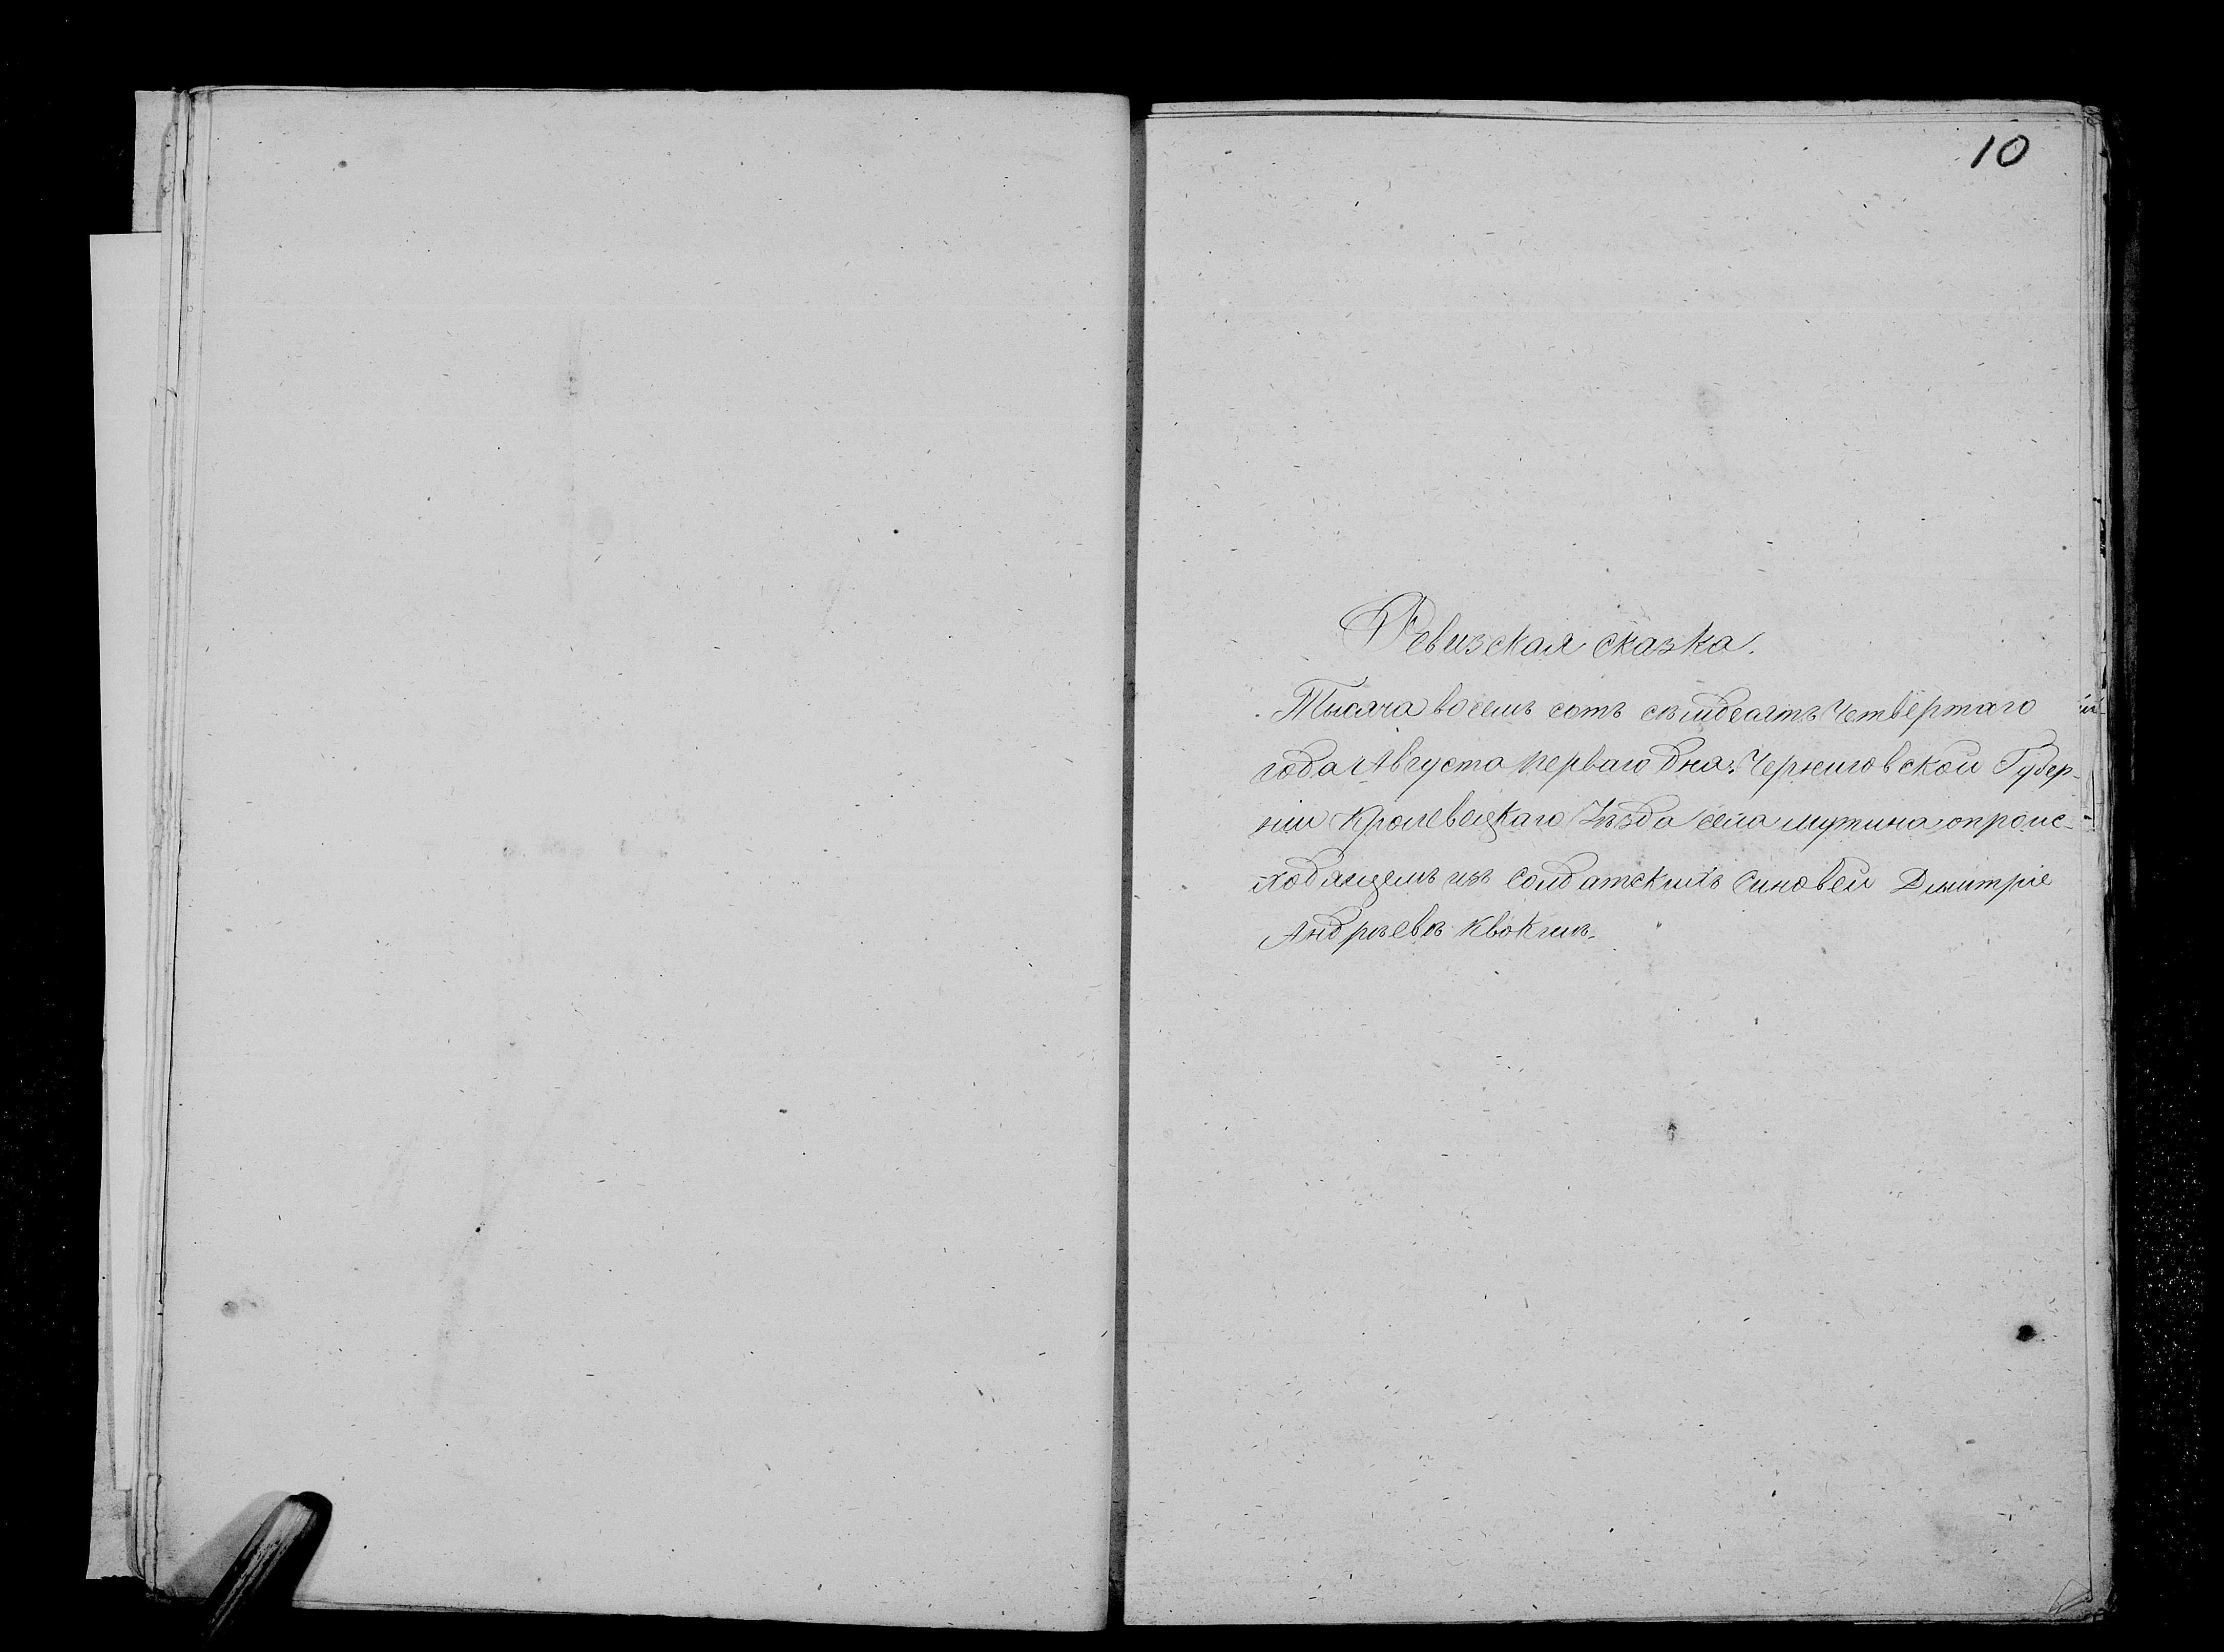 10
Ревизская сказка.
Тысяча восемь сотъ семдесятъ Четвертаго
года Августа перваго дня. Черниговской Губер-
ніи Кролевецкаго Уѣзда села Мутина опроис-
ходящемъ изъ Солдатскихъ Синовей Дмитріе
Андрѣевѣ